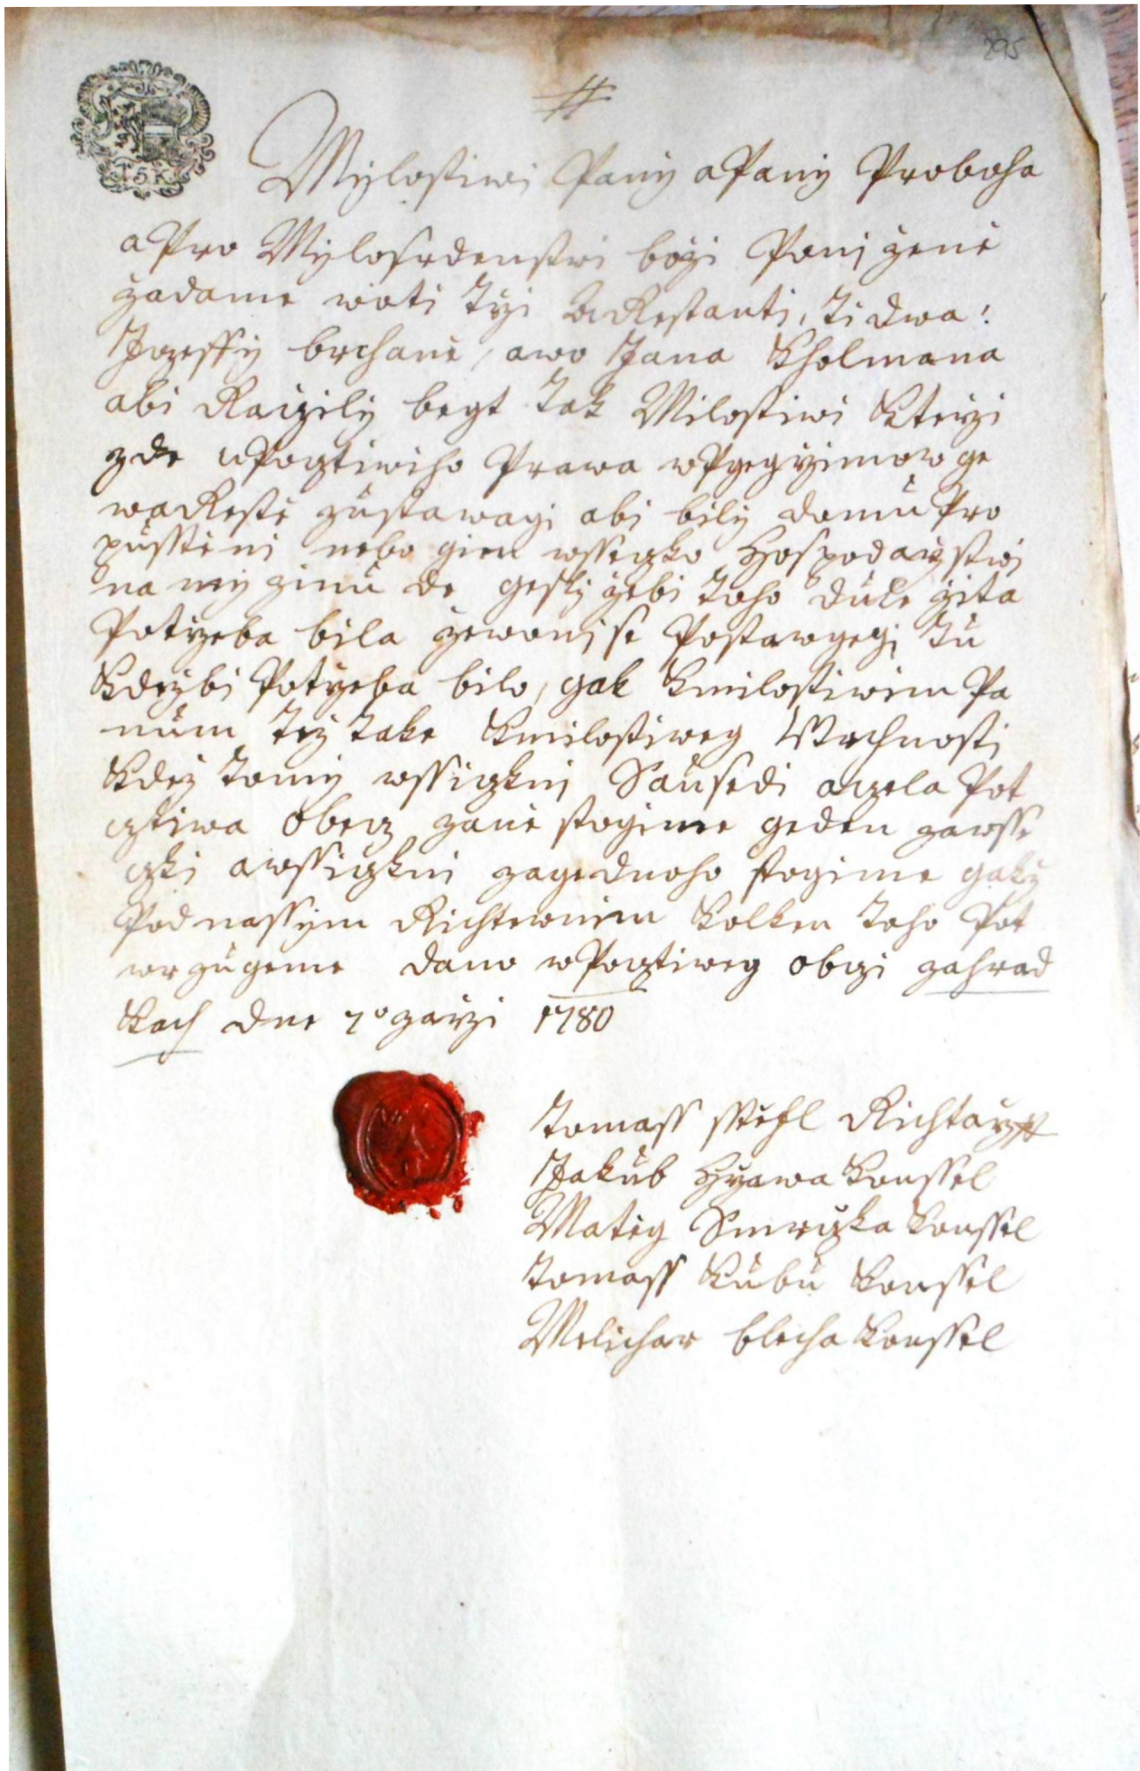 295
15 K
Mylostiwi Pany a Pany Proboha
a Pro Mylosrdenstwi bozi Ponizenie
žadame woti tři Arestanti, ti dwa:
Jozeffy brchanie, awo Jana Kholmana
abi Raczily begt tak Milostiwi Kterži
zde uPocztiwiho Prawa wPrzegizimow ge
waRestie zustawagi abi bily domu Pro
pusstieni nebo gim wssezko Hospodarzstwi
na mizinu de gestly žebi toho dule žita
Potrzeba bila ževoni se Postawgegi tu
Kdyžbi Potrzeba bilo, gak Kmilostiwim Pa
num též take Kmilostiweg Wrchnosti
Kdež tomy wssiczkni Sausedi aczela Pot
cztiwa obecz zanie stogime geden zawsse
czki awssiczkni zagednoho stogime gakž
Pod nassym Richternim Kolkem toho Pot
wrzugeme dano wPocztiweg obczi zahrad
Kach dne 7º zarži 1780
Tomass sstiefl Richtarž
Jakub Hrawa Konssel
Matieg Smrczka Konssel
Tomass Kubu Konssel
Melichar blecha Konssel